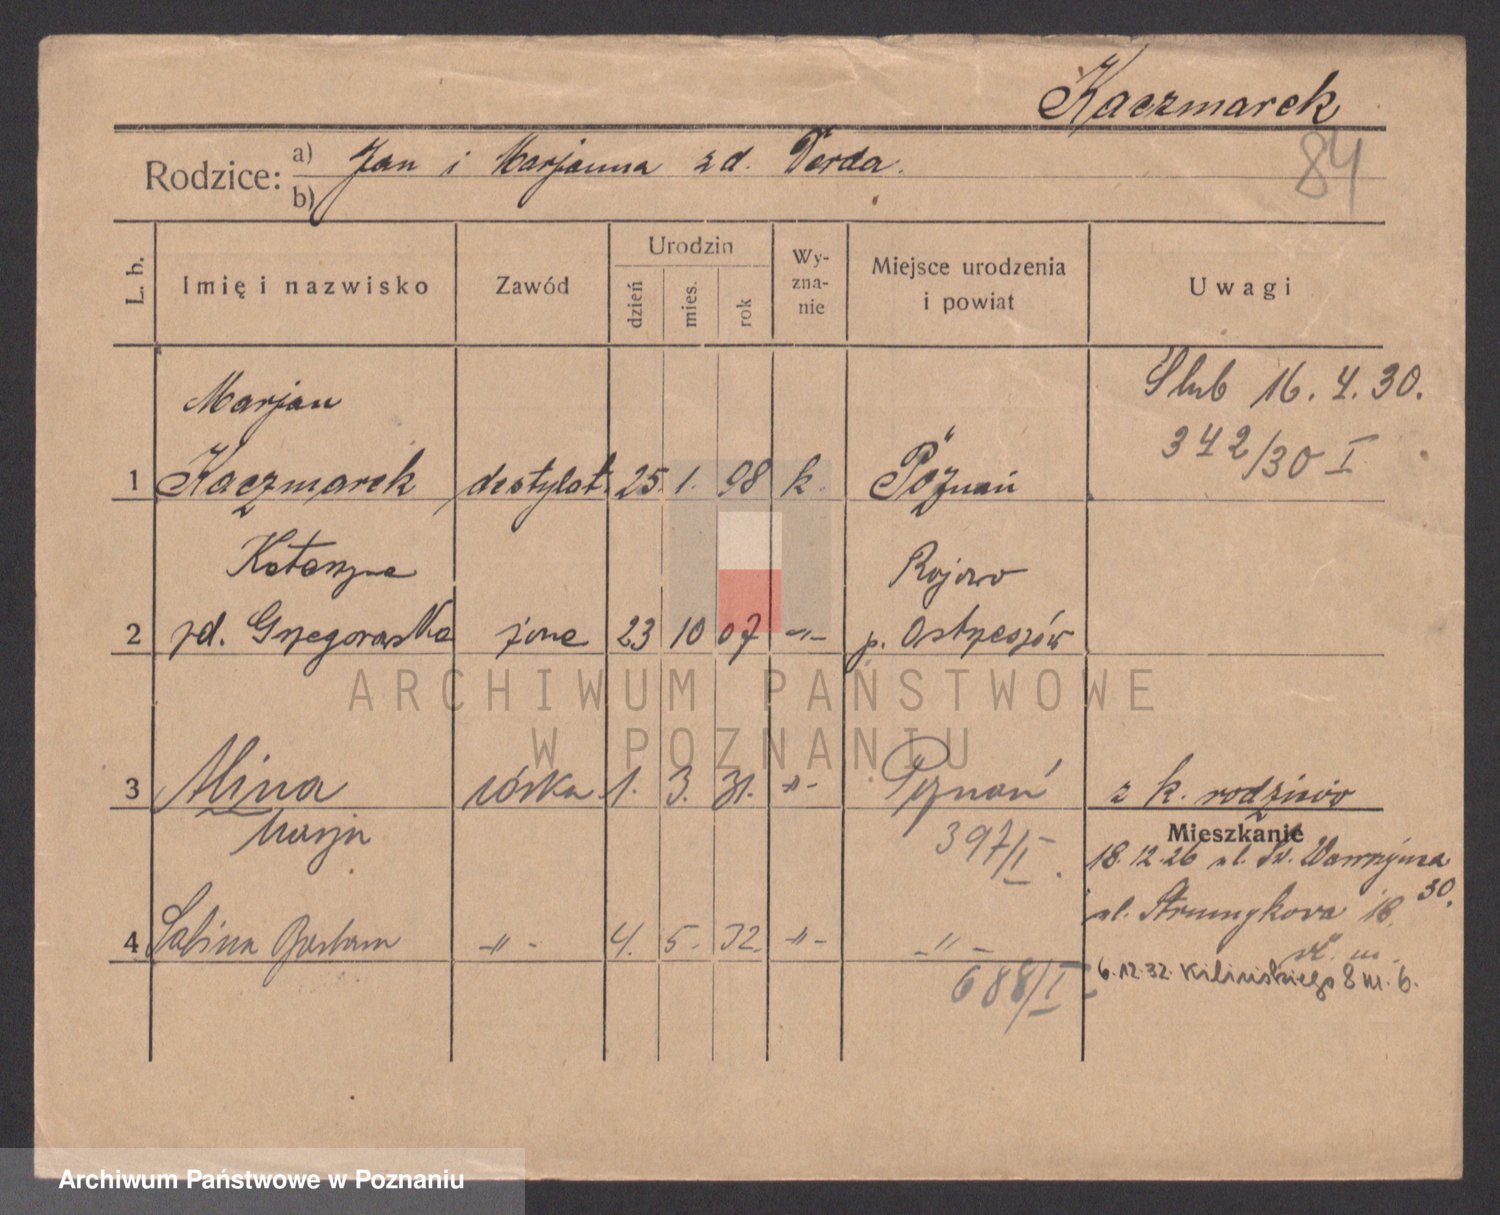 Kaczmarek
84
Rodzice: a) Jan i Marjanna zd. Derda.
b)
L. b. Imię i nazwisko Zawód Urodzin dzień mies. rok Wy-zna-nie Miejsce urodzenia i powiat Uwagi
Marjan Ślub 16. 4. 30.
342/30 I
1 Kaczmarek destylat. 25. 1. 98 k. Poznań
Katarzyna Rojowo
2 zd. Grzegorowska żona 23 10 07 -"- p. Ostrzeszów
ARCHIWUM PAŃSTWOWE
W POZNANIU
3 Alina córka 1. 3. 31. -"- Poznań z k. rodziców
Marja 397/I.
Mieszkanie
18.12.26 ul. Św. Wawrzyńca 30.
ul. Strumykowa 18.
4 Sabina Barbara -"- 4. 5. 32. -"- -"-
688/I
6.12.32. Kilińskiego 8 m. 6.
Archiwum Państwowe w Poznaniu